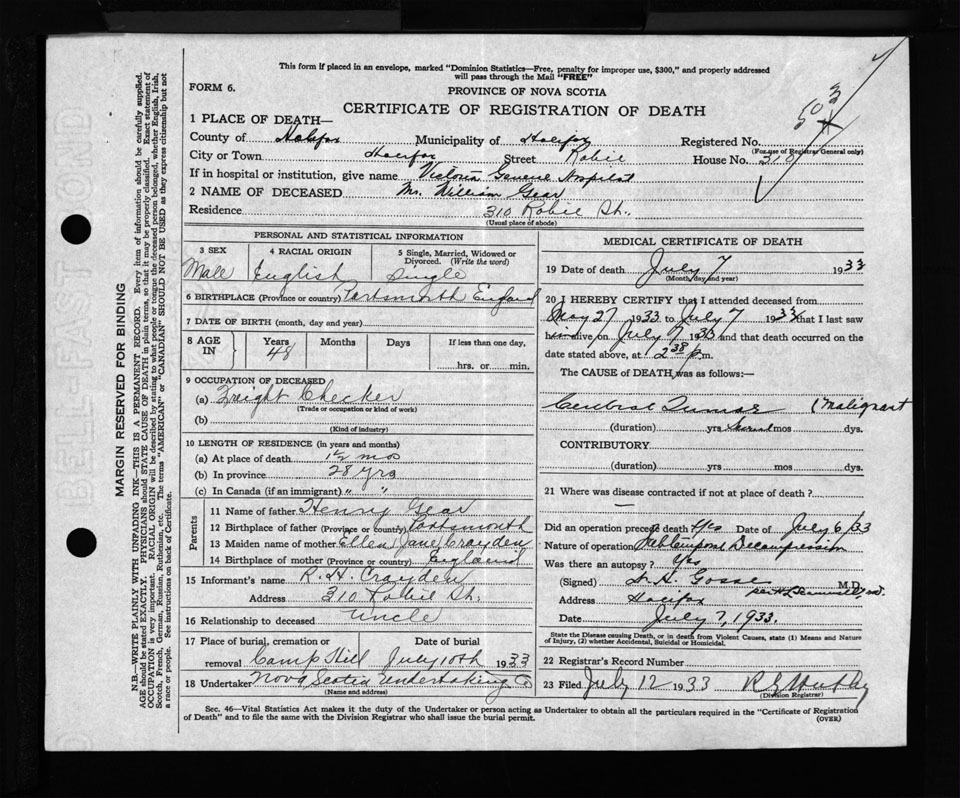 This form if placed in an envelope, marked "Dominion Statistics—Free, penalty for improper use, $300," and properly addressed
will pass through the Mail "FREE"
FORM 6.
PROVINCE OF NOVA SCOTIA
CERTIFICATE OF REGISTRATION OF DEATH
503
1 PLACE OF DEATH—
County of Halifax Municipality of Halifax Registered No.
(For use of Registrar General only)
City or Town Halifax Street Robie House No. 310
If in hospital or institution, give name Victoria General Hospital
2 NAME OF DECEASED Mr. William Gear
Residence 310 Robie St.
(Usual place of abode)
MARGIN RESERVED FOR BINDING
N.B.—WRITE PLAINLY WITH UNFADING INK—THIS IS A PERMANENT RECORD. Every item of information should be carefully supplied.
AGE should be stated EXACTLY. PHYSICIANS should STATE CAUSE OF DEATH in plain terms, so that it may be properly classified. Exact statement of
OCCUPATION is very important. RACIAL ORIGIN will be described by stating to what people or tongue the deceased person belonged, whether English, Irish,
Scotch, French, German, Russian, Ruthenian, etc. The terms "AMERICAN" or "CANADIAN" SHOULD NOT BE USED as they express citizenship but not
a race or people. See instructions on back of Certificate.
PERSONAL AND STATISTICAL INFORMATION
3 SEX 4 RACIAL ORIGIN 5 Single, Married, Widowed or
Divorced. (Write the word)
Male English Single
6 BIRTHPLACE (Province or country) Portsmouth England
7 DATE OF BIRTH (month, day and year)
8 AGE IN Years Months Days If less than one day,
48
hrs. or min.
9 OCCUPATION OF DECEASED
(a) Freight Checker
(Trade or occupation or kind of work)
(b)
(Kind of industry)
10 LENGTH OF RESIDENCE (in years and months)
(a) At place of death 1½ mos
(b) In province 28 yrs
(c) In Canada (if an immigrant) " "
Parents
11 Name of father Henry Gear
12 Birthplace of father (Province or country) Portsmouth
13 Maiden name of mother Ellen Jane Crayden
14 Birthplace of mother (Province or country) England
15 Informant's name R. H. Crayden
Address 310 Robie St.
16 Relationship to deceased Uncle
17 Place of burial, cremation or Date of burial
removal Camp Hill July 10th 1933
18 Undertaker Nova Scotia Undertaking Co
(Name and address)
MEDICAL CERTIFICATE OF DEATH
19 Date of death July 7 1933
(Month, day and year)
20 I HEREBY CERTIFY that I attended deceased from
May 27 1933 to July 7 1933 that I last saw
him alive on July 7 1933 and that death occurred on the
date stated above, at 12 38 p.m.
The CAUSE of DEATH was as follows:—
Cerebral Tumor (Malignant
(duration) yrs Several mos dys.
CONTRIBUTORY
(duration) yrs mos dys.
21 Where was disease contracted if not at place of death?
—
Did an operation precede death? Yes Date of July 6/33
Nature of operation Subtemporal Decompression
Was there an autopsy? Yes
(Signed) Gosse M.D.
Address Halifax
Date July 7, 1933.
State the Disease causing Death, or in death from Violent Causes, state (1) Means and Nature
of Injury, (2) whether Accidental, Suicidal or Homicidal.
22 Registrar's Record Number
23 Filed July 12 1933
(Division Registrar)
Sec. 46—Vital Statistics Act makes it the duty of the Undertaker or person acting as Undertaker to obtain all the particulars required in the "Certificate of Registration
of Death" and to file the same with the Division Registrar who shall issue the burial permit.
(OVER)